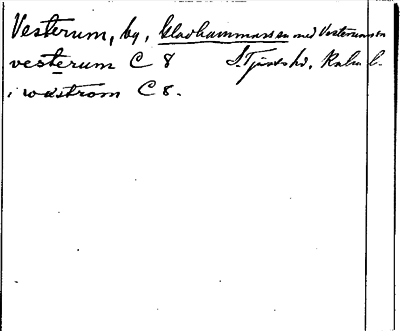 Vesterum, by, Gladhammars sn med Vesterums sn
vesterum C 8 S. Tjusts hd, Kalm. l.
i wästrom C 8.